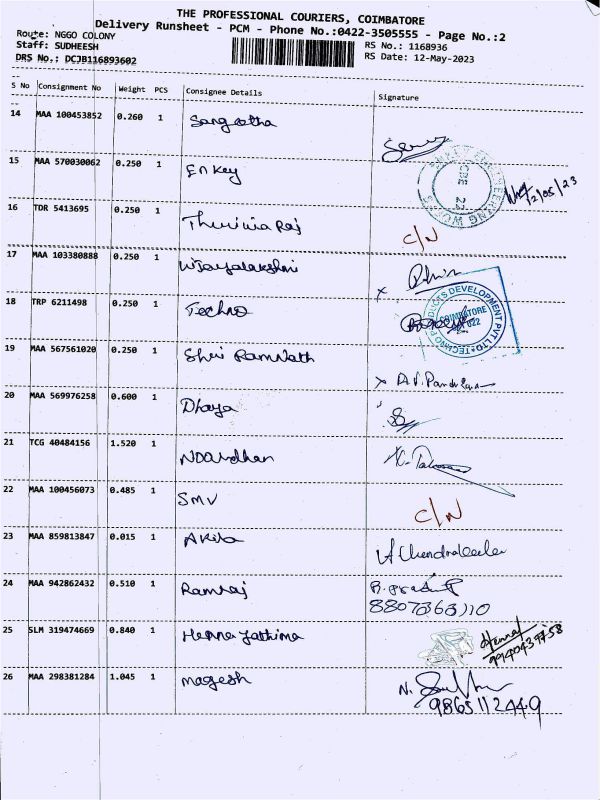 THE PROFESSIONAL COURIERS, COIMBATORE
Delivery Runsheet - PCM - Phone No.:0422-3505555 - Page No.:2
Route: NGGO COLONY
Staff: SUDHEESH
DRS No.: DCJB116893602
RS No.: 1168936
RS Date: 12-May-2023
S No Consignment No Weight PCS Consignee Details Signature
14 MAA 100453852 0.260 1 Sangeetha
15 MAA 570030062 0.250 1 Enkey 12/05/23
16 TDR 5413695 0.250 1 C/N
17 MAA 103380888 0.250 1 Vijayalakshmi
18 TRP 6211498 0.250 1 Techno
TECHNO PRODUCTS DEVELOPMENT PVT LTD
COIMBATORE
19 MAA 567561020 0.250 1 Shri RamNath
20 MAA 569976258 0.600 1 Dhaya
21 TCG 40484156 1.520 1
22 MAA 100456073 0.485 1 SMV C/N
23 MAA 859813847 0.015 1 Akila
24 MAA 942862432 0.510 1 Ramraj
8807363110
25 SLM 319474669 0.840 1
26 MAA 298381284 1.045 1 magesh N.
9865112449